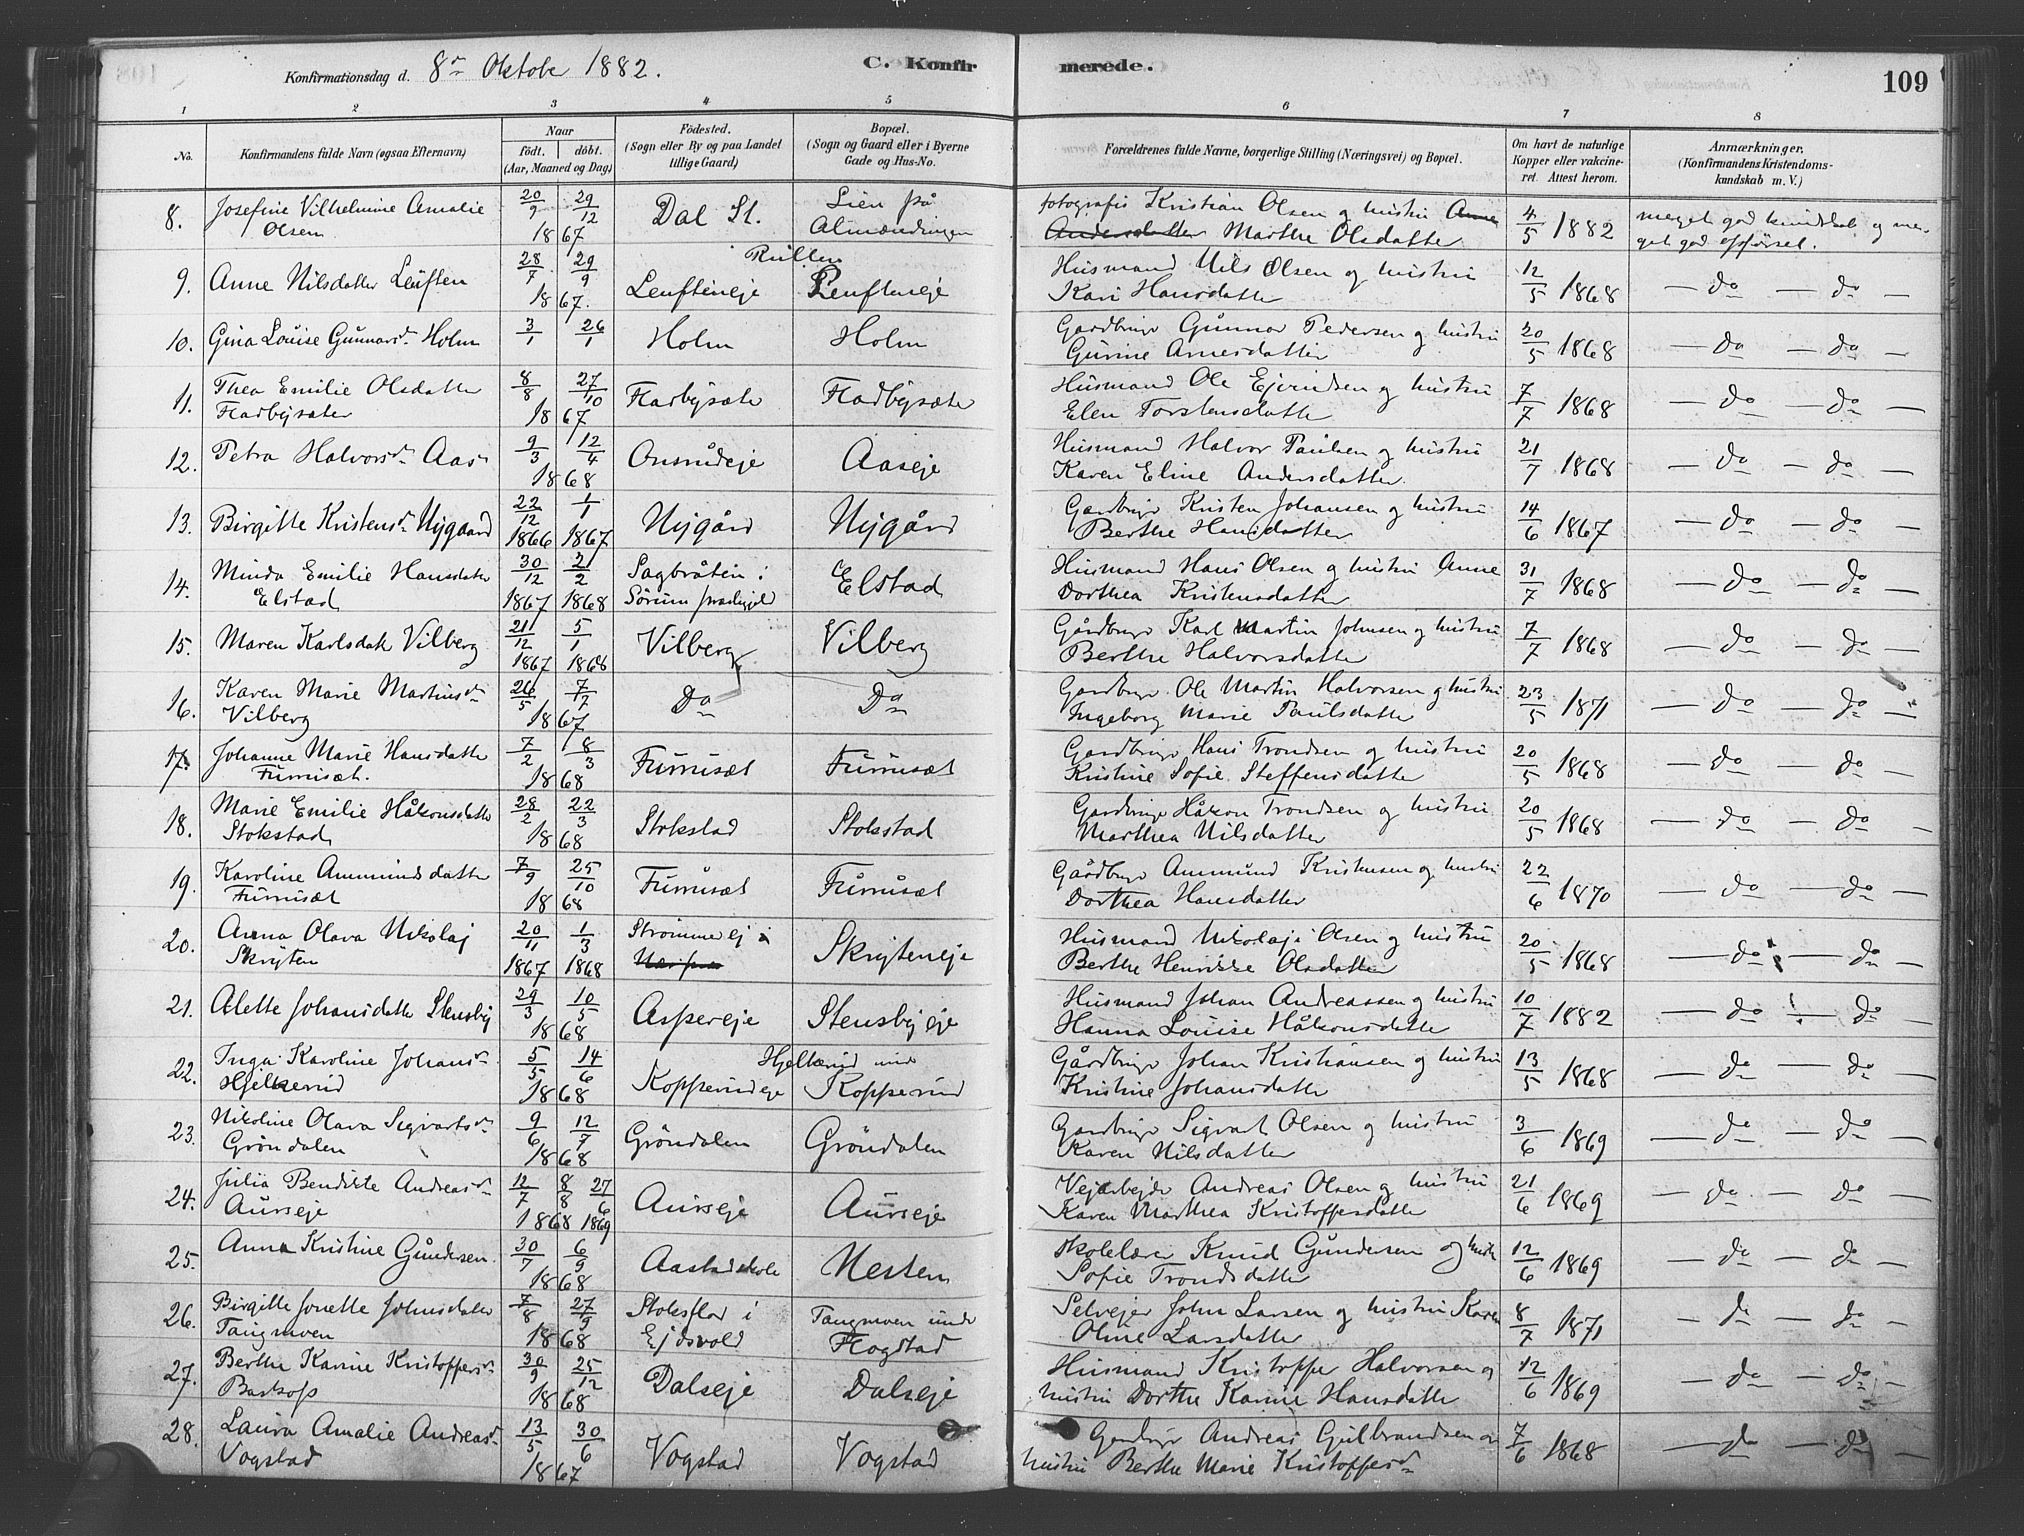 Konfirmationsdag d. 8de Oktober 1882. C. Konfirmerede. 109
1 2 3 4 5 6 7 8
No. Konfirmandens fulde Navn (ogsaa Efternavn) Naar født. døbt. (Aar, Maaned og Dag) Fødested. (Sogn eller By og paa Landet tillige Gaard) Bopæl. (Sogn og Gaard eller i Byerne Gade og Hus-No. Forældrenes fulde Navne, borgerlige Stilling (Næringsvei) og Bopæl. Om havt de naturlige Kopper eller vaccineret. Attest herom. Anmærkninger, (Konfirmandens Kristendomskundskab m. V.)
8. Josefine Vilhelmine Amalie Olsen 20/9 29/12 1867 Dal St. Lien på Almændingen fotografis Kristian Olsen og hustru Anne Andersdatter Marthe Olsdatter 4/5 1882 meget god kundskab og meget god opførsel.
9. Anne Nilsdatter Leuften 28/7 29/9 1867. Leufteneje Rullen Leufteneje Husmand Nils Olsen og hustru Kari Hansdatter 12/5 1868 — do — do —
10. Gina Louise Gunnarsdr Holm 3/1 26/1 Holm Holm Gardbruger Gunnar Pedersen og hustru Gurine Arnesdatter 20/5 1868 — do — do —
11. Thea Emilie Olsdatter Fladbysæter 8/8 27/10 1867 Fladbysæter Fladbysæter Husmand Ole Ejvindsen og hustru Elen Torstensdatter 7/7 1868 — do — do —
12. Petra Halvorsdr Aas 9/3 12/4 1868 Onsrudeje Aaseje Husmand Halvor Paulsen og hustru Karen Eline Andersdatter. 21/7 1868 — do — do —
13. Birgitte Kristensdr Nygaard 22/12 1866 1/1 1867 Nygård Nygård Gardbruger Kristen Johansen og hustru Berthe Hansdatter 14/6 1867 — do — do —
14. Minda Emilie Hansdatter Elstad 30/12 1867 21/2 1868 Sagbråten i Sørum præstegjeld Elstad Husmand Hans Olsen og hustru Anne Dorthea Kristensdatter 31/7 1868 — do — do
15. Maren Karlsdatter Vilberg 21/12 1867 5/1 1868 Vilberg Vilberg Gårdbruger Karl Martin Johnsen og hustru Berthe Halvorsdatter 7/7 1868 — do — do —
16. Karen Marie Martinsdr Vilberg 26/5 7/7 1867 Do Do Gardbruger Ole Martin Halvorsen og hustru Ingeborg Marie Paulsdatter 23/5 1871 — do — do —
17. Johanne Marie Hansdatter Furruset. 7/2 8/3 1868 Furruset Furruset Gardbruger Hans Trondsen og hustru Kristine Sofie Steffensdatter 20/5 1868 — do — do —
18. Marie Emilie Håkonsdatter Stokstad 28/2 22/3 1868 Stokstad Stokstad Gardbruger Håkon Trondsen og hustru Marthea Nilsdatter 20/5 1868 — do — do —
19. Karoline Ammundsdatter Furruset 7/9 25/10 1868 Furruset Furruset Gårdbruger Ammund Kristensen og hustru Dorthea Hansdatter 22/6 1870 — do — do —
20. Anna Olava Nikolaj Skrjten 20/11 1867 1/3 1868 Strømmeej i Skrjteneje Husmand Nikolaj Olsen og hustru Berthe Henrikke Olsdatter 20/5 1868 — do — do —
21. Alette Johansdatter Stensby 29/3 10/5 1868 Aspereje Stensbyeje Husmand Johan Andreassen og hustru Hanna Louise Håkonsdatter 10/7 1882 — do — do —
22. Inga Karoline Johansdr Hjelkerud 5/5 14/6 1868 Kopperudeje Hjelkerud under Kopperud Gårdbruger Johan Kristiansen og hustru Kristine Johansdatter 13/5 1868 — do — do —
23. Nikoline Olava Sigvartsdr Grøndalen 9/6 12/7 1868 Grøndalen Grøndalen Gardbruger Sigvart Olsen og hustru Karen Nilsdatter 3/6 1869 — do — do —
24. Julia Bendikte Andreasdr Aurseje 12/7 8/8 27/6 1868 1869 Aurseje Aurseje Vejarbejder Andreas Olsen og hustru Karen Marthea Kristoffersdatter 21/6 1869 — do — do —
25. Anna Kristine Gundersen 30/7 6/9 1868 Aastadskole Nesten Skolelærer Knud Gundersen og hustru Sofie Trondsdatter 12/6 1869 — do — do —
26. Birgitte Jonette Johnsdatter Tangmoen 7/8 27/9 1868 Stoksflor i Ejdsvold Tangmoen under Flogstad Selvejer John Larsen og hustru Karen Oline Larsdatter 8/7 1871 — do — do —
27. Berthe Karine Kristoffersdr Baskops 30/9 25/12 1868 Dalseje Dalseje Husmand Kristoffer Halvorsen og hustru Dorthe Karine Hansdatter 12/6 1869 — do — do —
28. Laura Amalie Andreasdr Vogstad 13/5 30/6 1867 Vogstad Vogstad Gardbruger Andreas Gulbrandsen og hustru Berthe Marie Kristoffersdr 7/6 1868 — do — do —